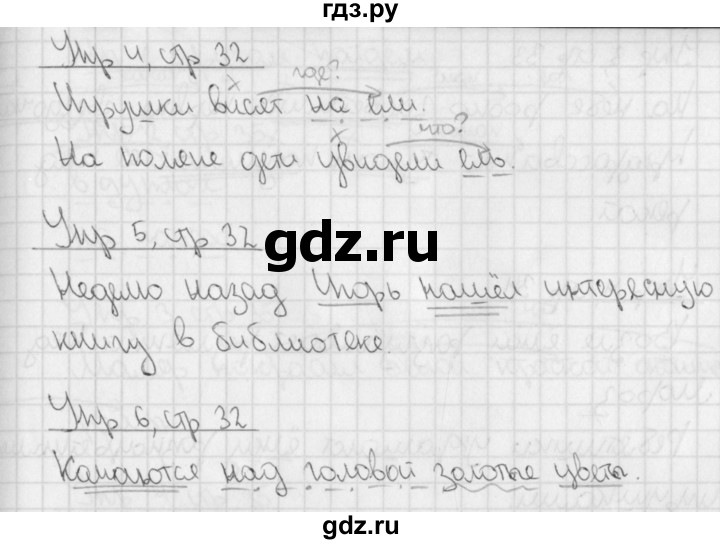 гдз.ру
Упр 4, стр 32
где?
х
Игрушки висят на ели.
х
что?
На поляне дети увидели ель.
Упр 5, стр 32
gdz.ru
Неделю назад Игорь нашёл интересную
книгу в библиотеке.
Упр 6, стр 32
Качаются над головой золотые цветы.
gdz.ru